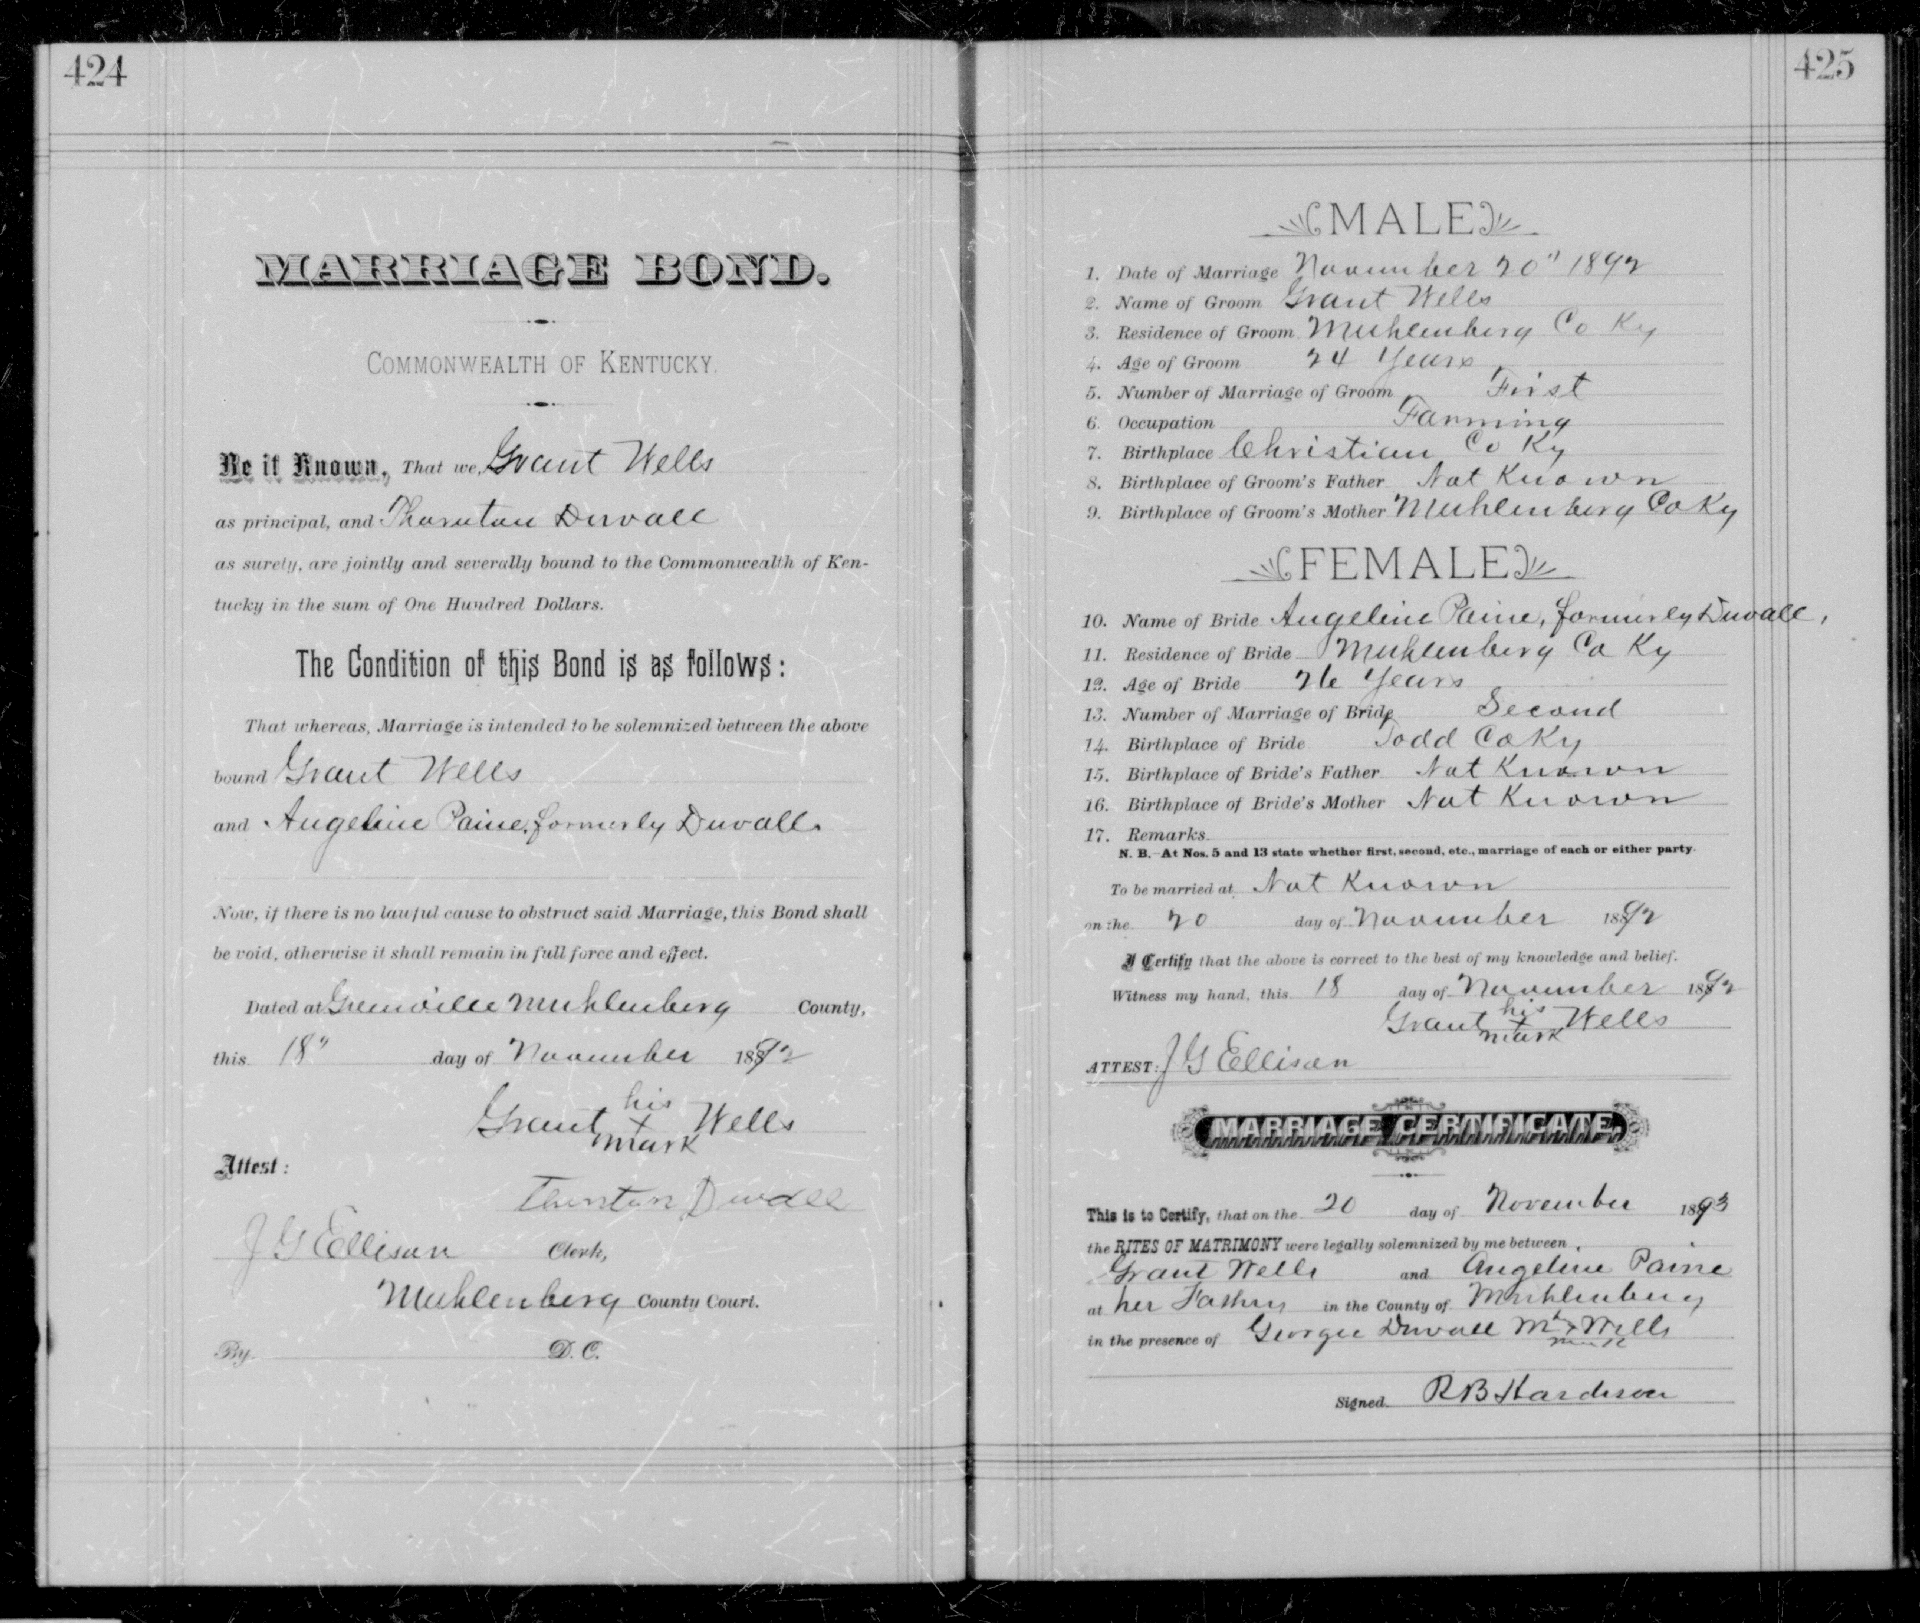 424
MARRIAGE BOND.
COMMONWEALTH OF KENTUCKY.
Be it Known, That we, Grant Wells
as principal, and Thornton Duvall
as surety, are jointly and severally bound to the Commonwealth of Ken-
tucky in the sum of One Hundred Dollars.
The Condition of this Bond is as follows:
That whereas, Marriage is intended to be solemnized between the above
bound Grant Wells
and Angeline Paine, formerly Duvall.
Now, if there is no lawful cause to obstruct said Marriage, this Bond shall
be void, otherwise it shall remain in full force and effect.
Dated at Greenville Muhlenberg County,
this 18" day of November 1892
his
Grant x Wells
mark
Attest:
Thornton Duvall
J G Ellison Clerk,
Muhlenberg County Court.
By D. C.
425
MALE
1. Date of Marriage November 20" 1892
2. Name of Groom Grant Wells
3. Residence of Groom Muhlenberg Co Ky
4. Age of Groom 24 Years
5. Number of Marriage of Groom First
6. Occupation Farming
7. Birthplace Christian Co Ky
8. Birthplace of Groom's Father Not Known
9. Birthplace of Groom's Mother Muhlenberg Co Ky
FEMALE
10. Name of Bride Angeline Paine, formerly Duvall,
11. Residence of Bride Muhlenberg Co Ky
12. Age of Bride 26 Years
13. Number of Marriage of Bride Second
14. Birthplace of Bride Todd Co Ky
15. Birthplace of Bride's Father Not Known
16. Birthplace of Bride's Mother Not Known
17. Remarks
N. B.-At Nos. 5 and 13 state whether first, second, etc., marriage of each or either party.
To be married at Not Known
on the 20 day of November 1892
I Certify that the above is correct to the best of my knowledge and belief.
Witness my hand, this 18 day of November 1892
his
Grant x Wells
mark
ATTEST: J G Ellison
MARRIAGE CERTIFICATE.
This is to Certify, that on the 20 day of November 1893
the RITES OF MATRIMONY were legally solemnized by me between
Grant Wells and Angeline Paine
at her Fathers in the County of Muhlenberg
in the presence of Georgee Duvall Wells
Signed R B Hardison